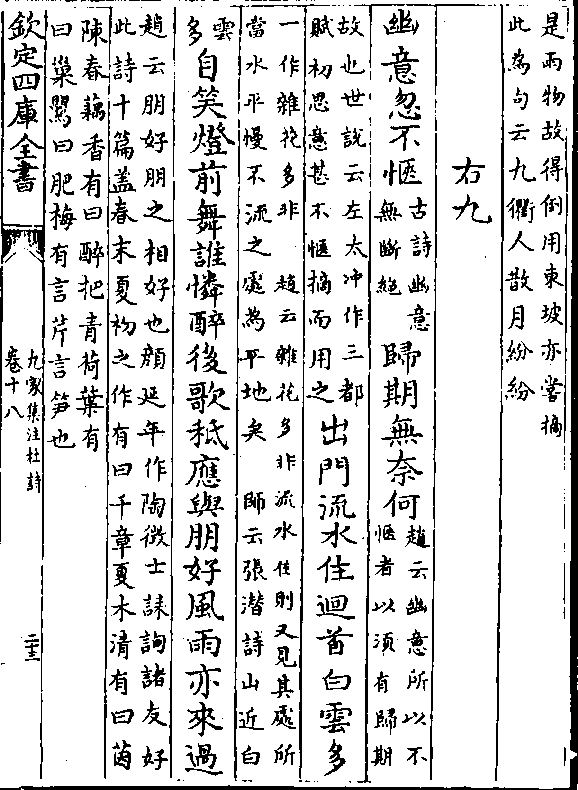 是兩物故得倒用東坡亦嘗摘
此為句云九衢人散月紛紛
右九
幽意忽不愜
古詩幽意
無斷絕
歸期無奈何
趙云幽意所以不
愜者以須有歸期
故也世說云左太冲作三都
賦初思意甚不愜摘而用之
出門流水住迴首白雲多
一作雜花多非 趙云雜花多非流水住則又見其處所
當水平慢不流之處為平地矣 師云張潛詩山近白
雲
多
自笑燈前舞誰憐醉後歌秪應與朋好風雨亦來過
趙云朋好朋之相好也顔延年作陶徴士誄詢諸友好
此詩十篇蓋春末夏初之作有曰千章夏木清有曰茵
陳春藕香有曰醉把青荷葉有
曰巢鶯曰肥梅有言芹言笋也
欽定四庫全書
九家集注杜詩
卷十八
二十三